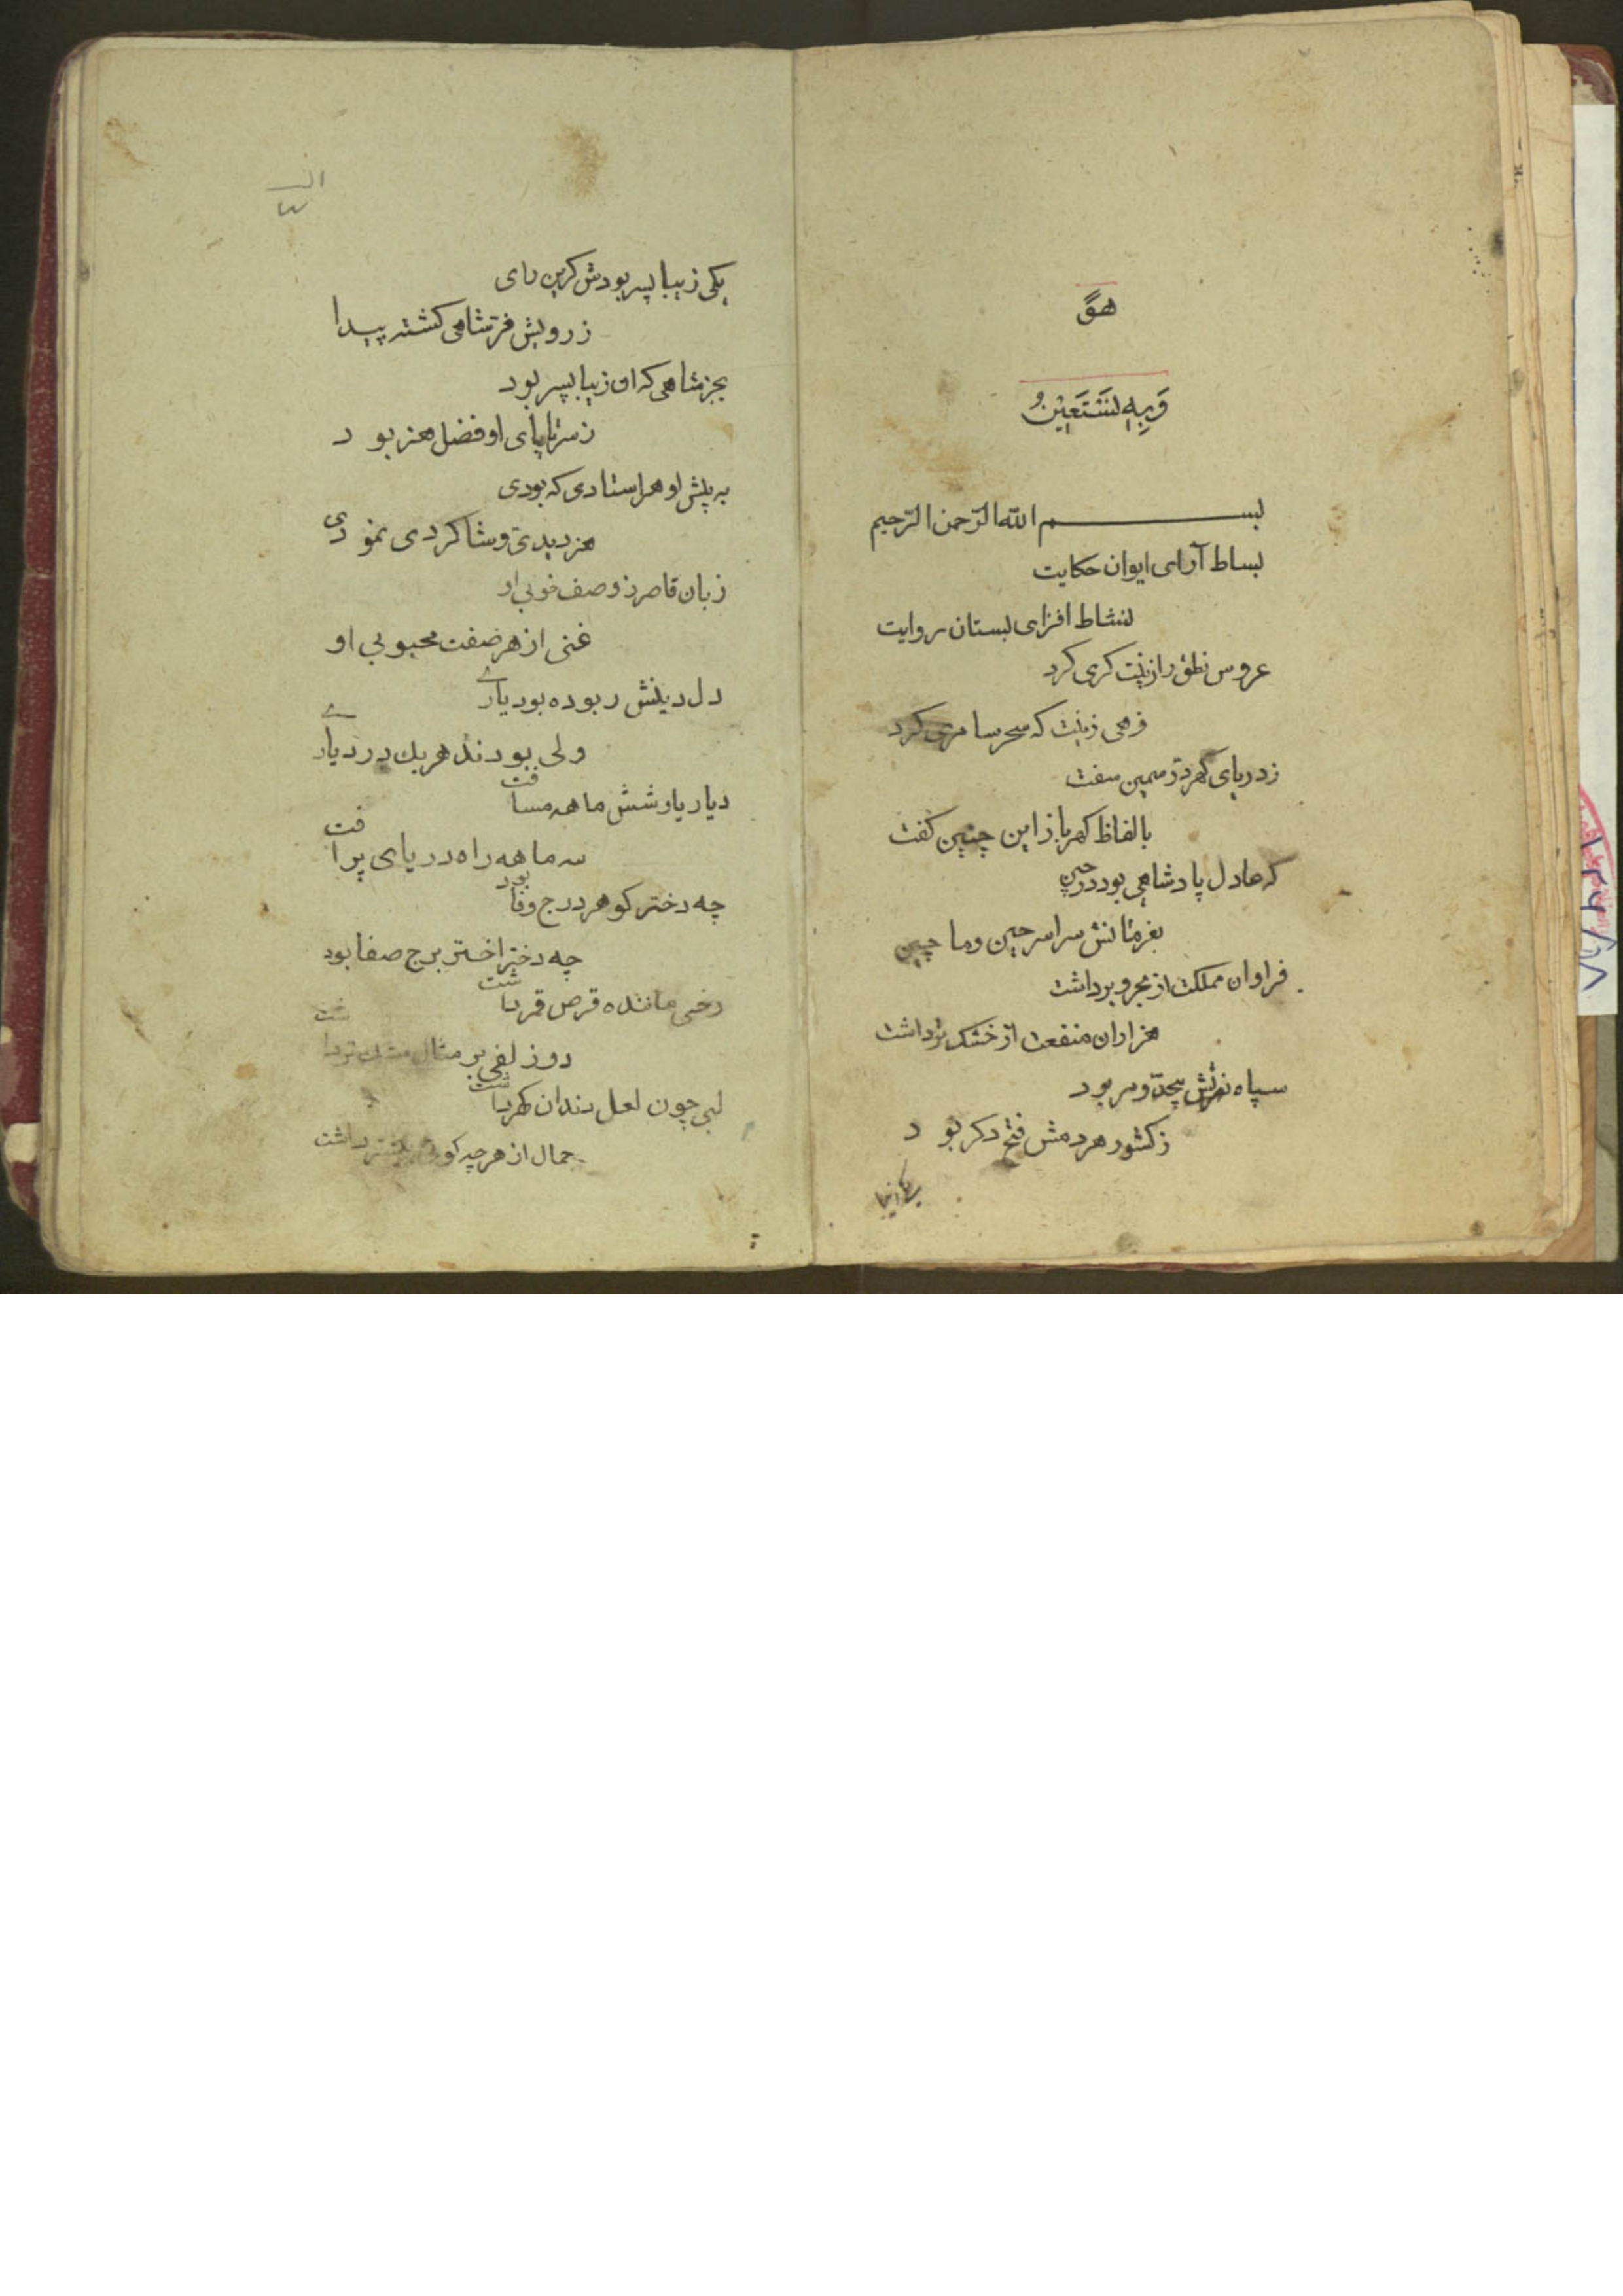 هو
وَبِهِ نَسْتَعِیْنُ
بسم الله الرّحمن الرّحیم
بساط آرای ایوان حکایت
نشاط افزای بستان روایت
عروس نطق را زینت کری کرد
زهی زینت که سحر سامری کرد
ز دریای کهر درّ سمین سفت
بالفاظ کهربار این چنین کفت
که عادل پادشاهی بود در چین
بفرمانش سراسر چین و ماچین
فراوان مملکت از بحر و بر داشت
هزاران منفعت از خشک و تر داشت
سپاه نصرتش بیحدّ و مر بود
ز کشور هر دمش فتح دکر بود
یکی زیبا
یکی زیبا پسر بودش کزین رای
ز رویش فرّ شاهی کشته پیدا
بجز شاهی که ان زیبا پسر بود
ز سر تا پای او فضل هنر بود
به پیش او هر استادی که بودی
هنر دیدی و شاکردی نمودی
زبان قاصر ز وصف خوبی او
غنی از هر صفت محبوبی او
دل دینش ربوده بود یاری
ولی بودند هریك در دیاری
دیار یار شش ماهه مسافت
سه ماهه راه دریای پر افت
چه دختر کوهر درج وفا بود
چه دختر اختر برج صفا بود
رخی ماننده قرص قمر داشت
دو زلفی بر مثال مشك تر داشت
لبی چون لعل دندان کهر داشت
جمال از هرچه کویی بیشتر داشت